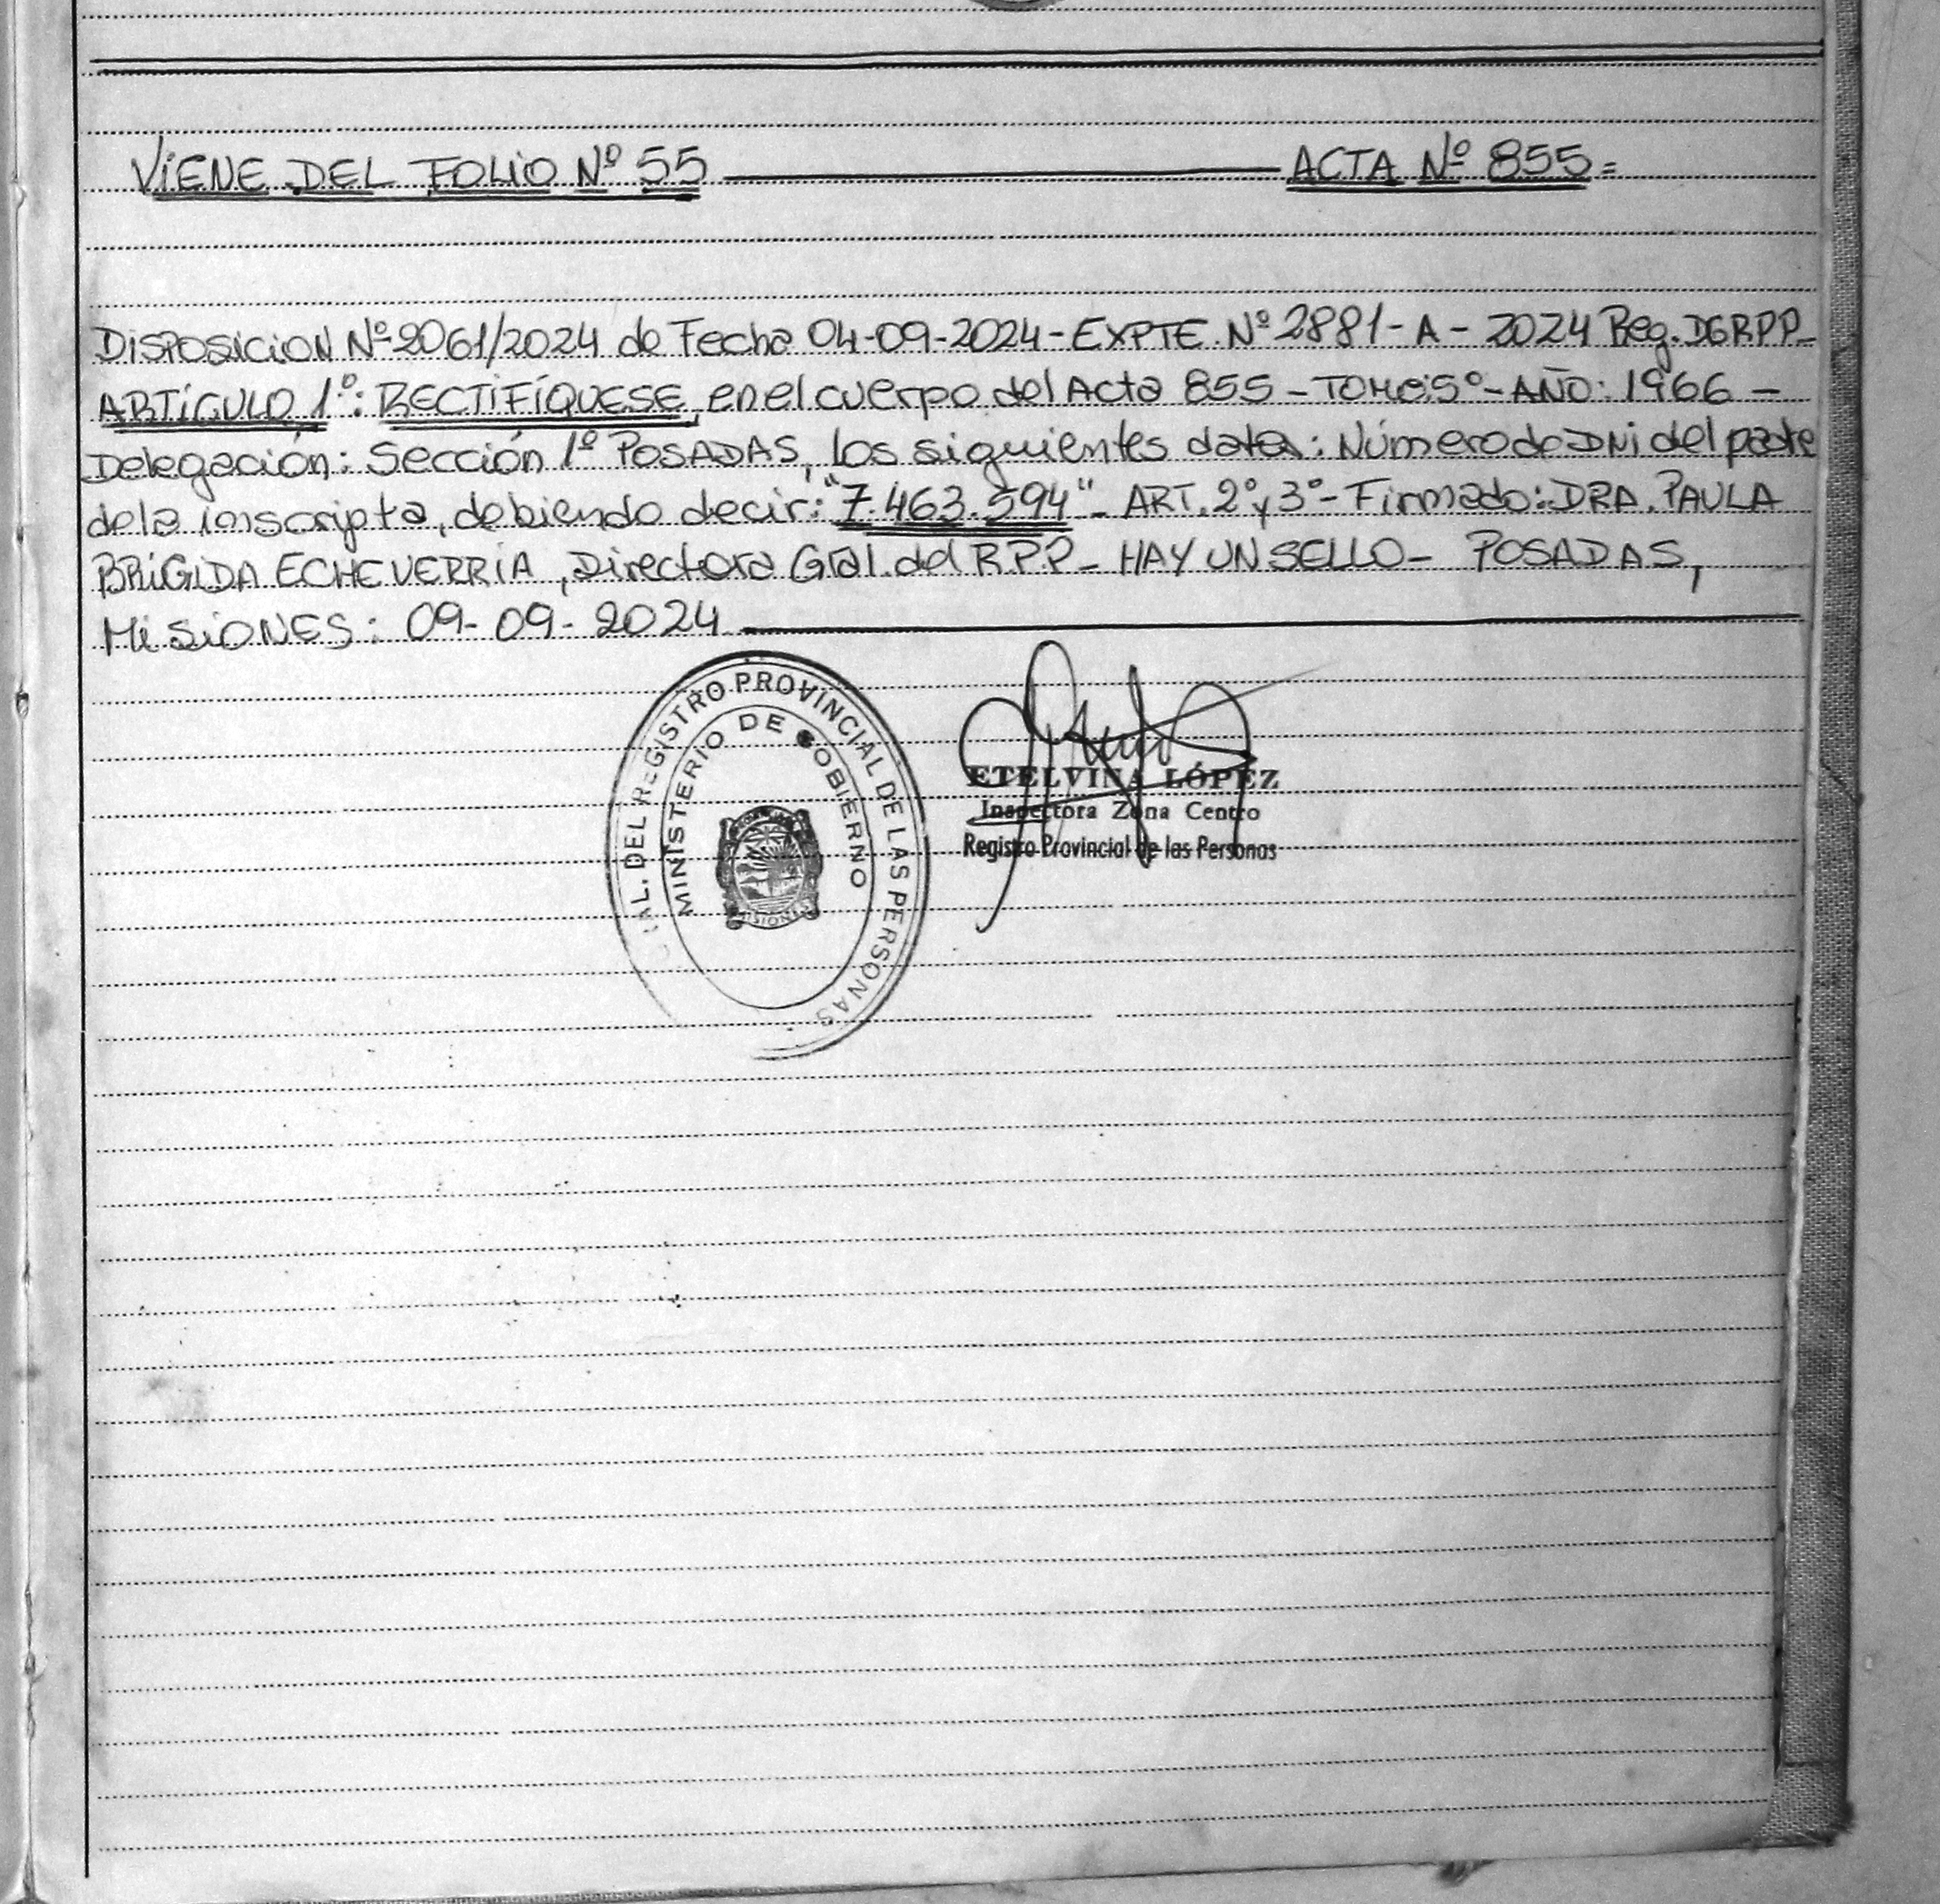 VIENE DEL FOLIO Nº 55 ACTA Nº 855=
DISPOSICION Nº 2061/2024 de Fecha 04-09-2024-EXPTE Nº 2881-A-2024 Reg. DGRPP-
ARTÍCULO 1º: RECTIFÍQUESE, en el cuerpo del Acta 855-TOMO:5º-AÑO: 1966-
Delegación: Sección 1º POSADAS, los siguientes datos: Número de DNi del padre
de la inscripta, debiendo decir: "7.463.594"- ART. 2º y 3º- Firmado: DRA. PAULA
BRIGIDA ECHEVERRIA, Directora Gral. del R.P.P- HAY UN SELLO- POSADAS,
MiSiONES: 09-09-2024
GRAL. DEL REGISTRO PROVINCIAL DE LAS PERSONAS
MINISTERIO DE GOBIERNO
MISIONES
ETELVINA LÓPEZ
Inspectora Zona Centro
Registro Provincial de las Personas